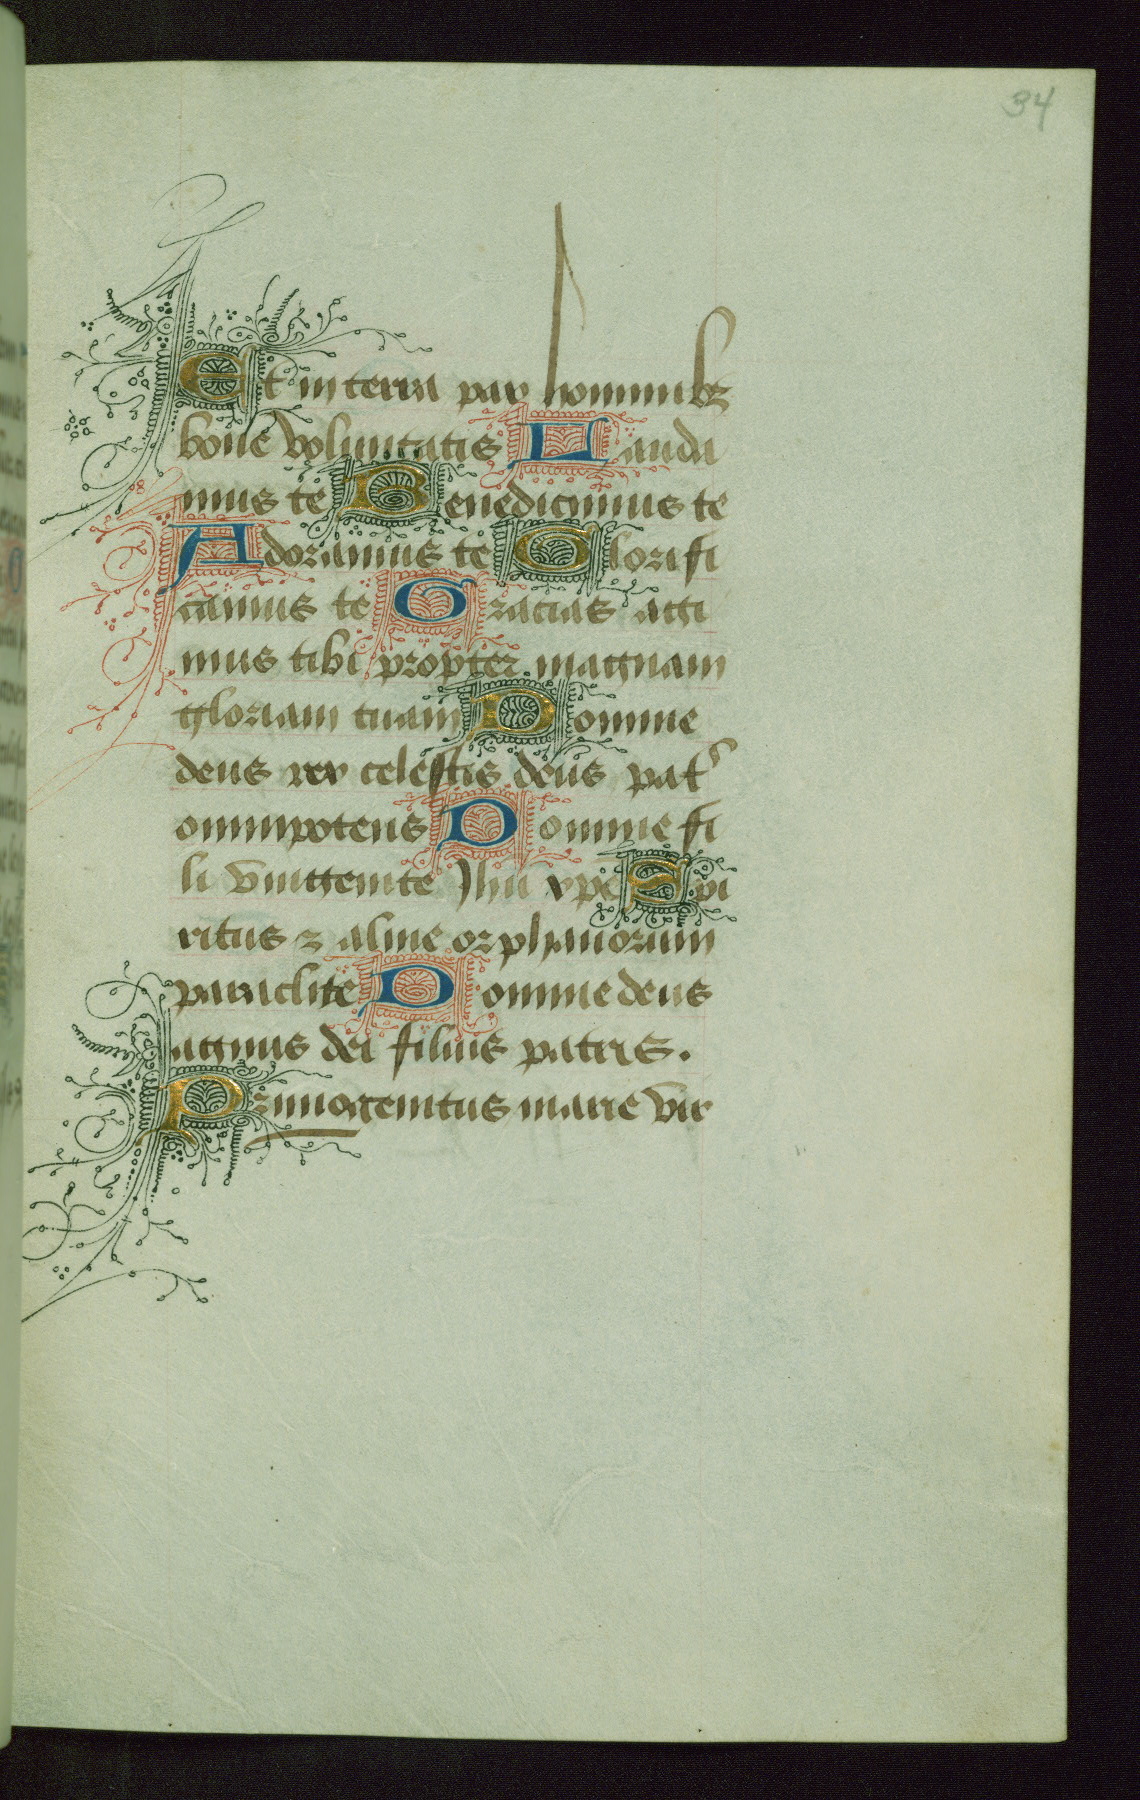 34
Et in terra pax hominibꝫ
bone voluntatis Lauda
mus te Benedicimus te
Adoramus te Glorifi
camus te Gracias agi
mus tibi propter magnam
gloriam tuam Domine
deus rex celestis deus pat͛
omnipotens Domine fi
li vnigenite Jhu xpe Spi
ritus ⁊ alme orphanorum
paraclite Domine deus
agnus dei filius patris.
Primogenitus marie vir